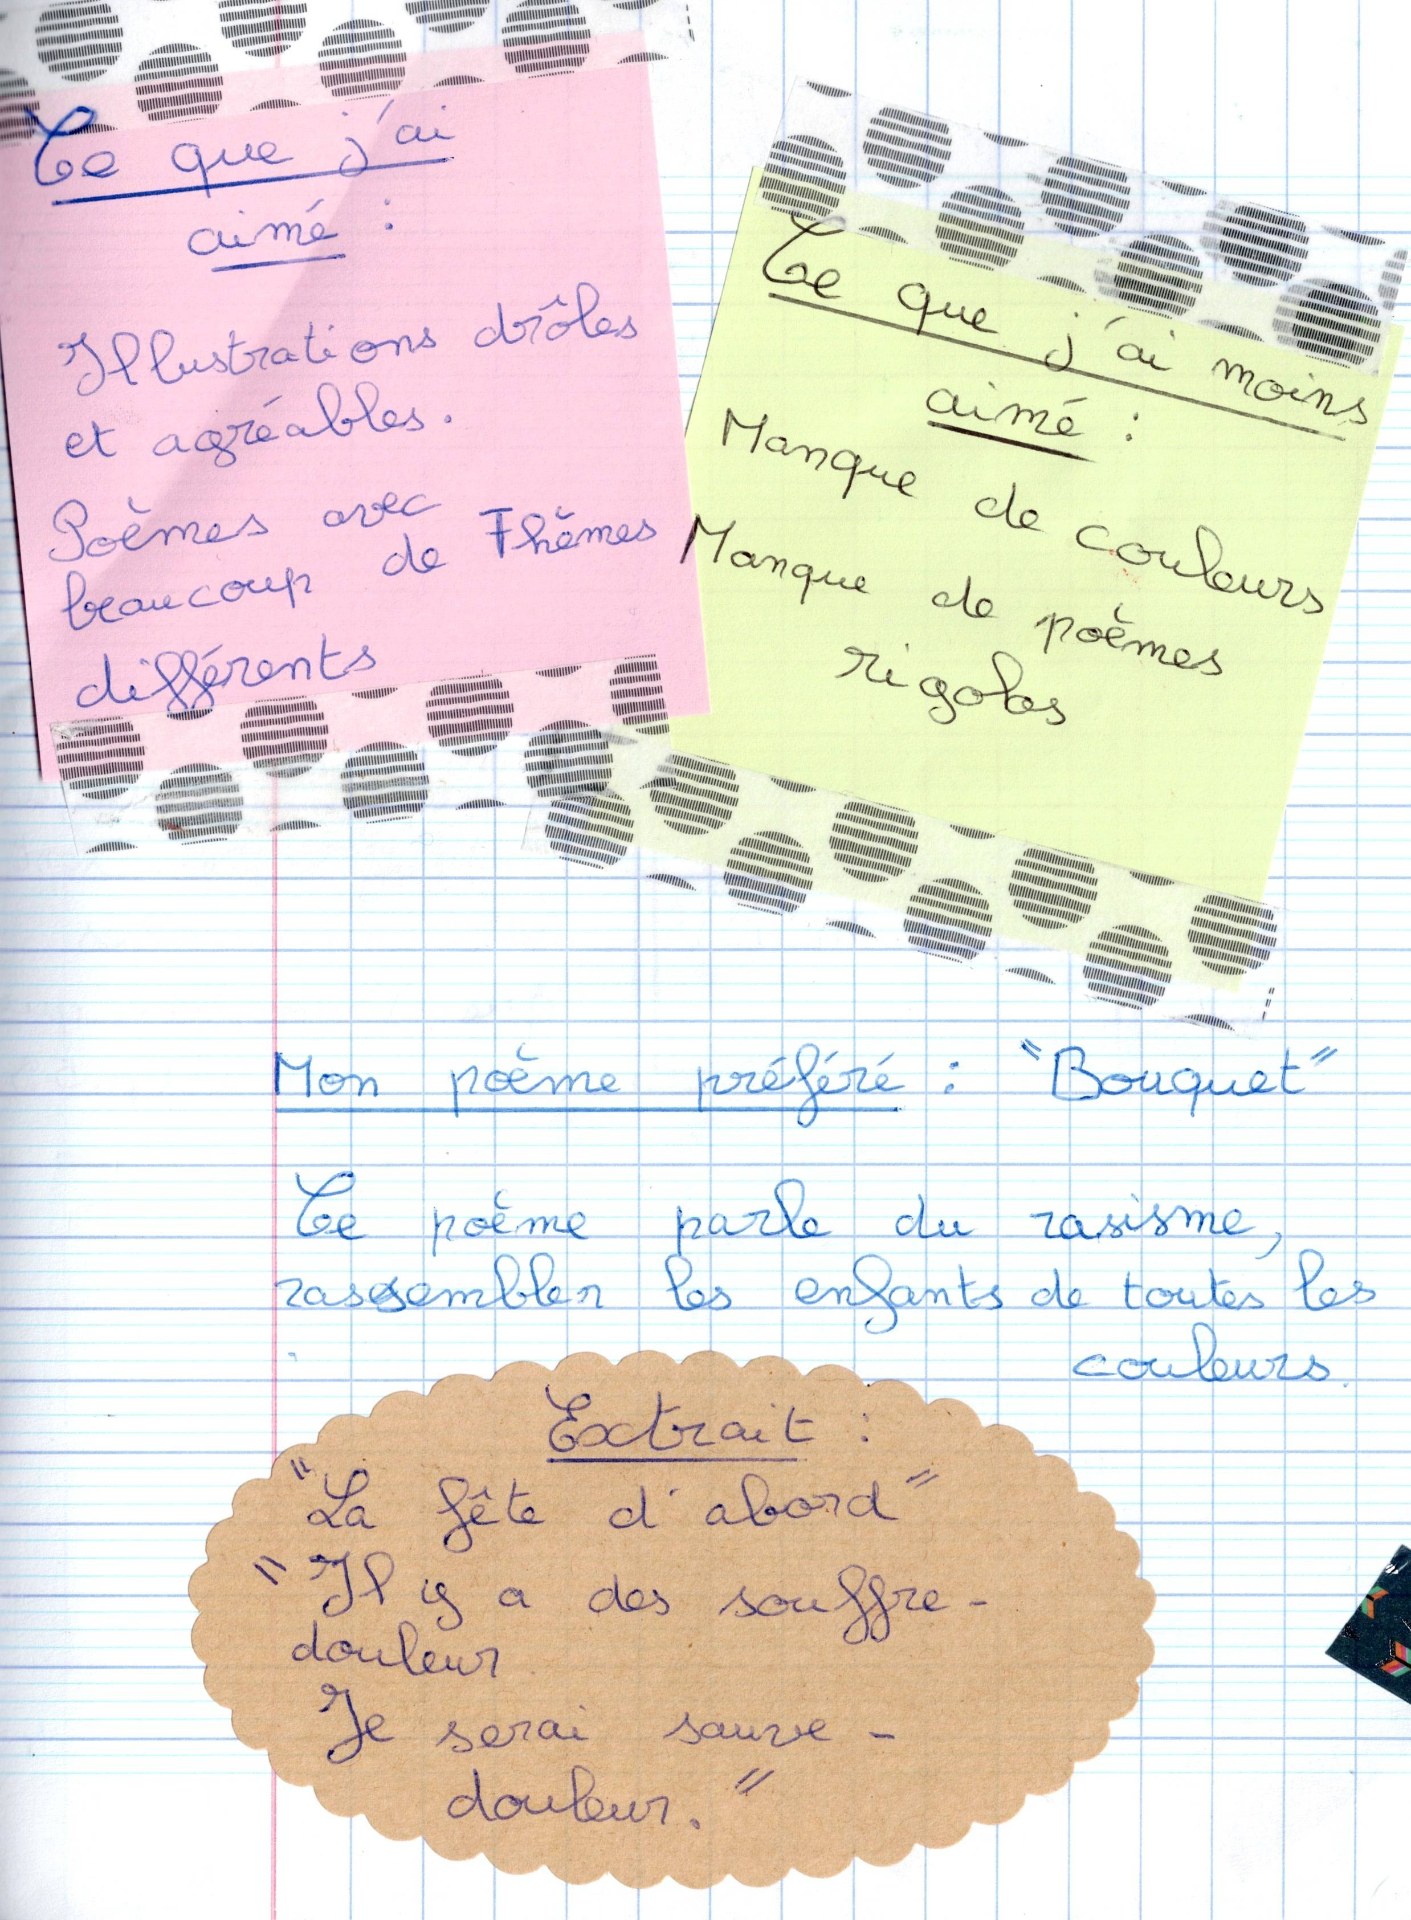 Ce que j'ai
aimé :
Illustrations drôles
et agréables.
Poèmes avec
beaucoup de Thèmes
différents
Ce que j'ai moins
aimé :
Manque de couleurs
Manque de poèmes
rigolos
Mon poème préféré : "Bouquet"
Ce poème parle du rasisme,
rassembler les enfants de toutes les
couleurs.
Extrait :
"La fête d'abord"
"Il y a des souffre-
douleur
Je serai sauve-
douleur."